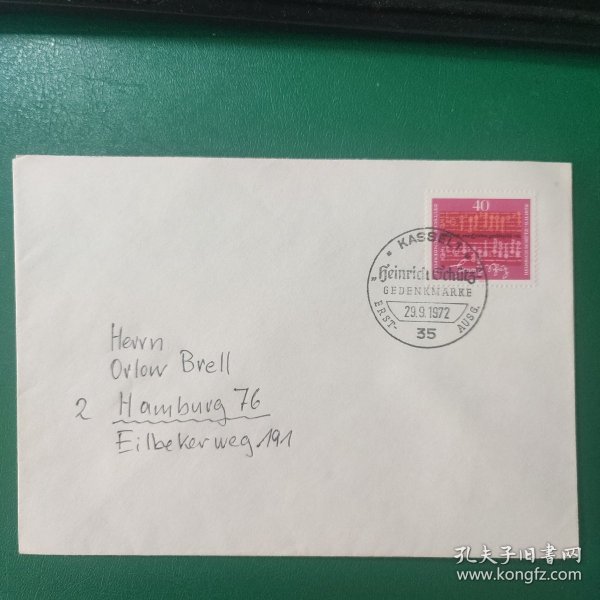 40
KASSEL
„Heinrich Schütz"
GEDENKMARKE
29.9.1972
ERST- AUSG.
35
Herrn
Orlow Brell
2 Hamburg 76
Eilbekerweg 191
孔夫子旧书网
www.kongfz.com